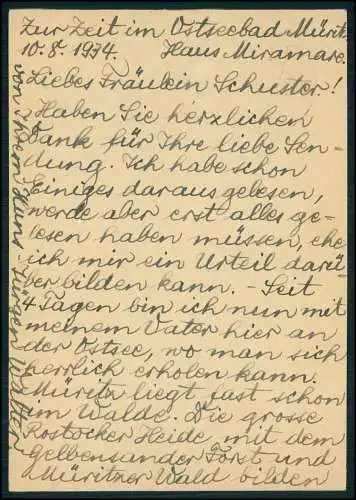 Zur Zeit im Ostseebad Müritz
10. 8. 1934. Haus Miramare.
Liebes Fräulein Schuster!
Haben Sie herzlichen
Dank für Ihre liebe Sen-
dung. Ich habe schon
Einiges daraus gelesen,
werde aber erst alles ge-
lesen haben müssen, ehe
ich mir ein Urteil darü-
ber bilden kann. - Seit
4 Tagen bin ich nun mit
meinem Vater hier an
der Ostsee, wo man sich
herrlich erholen kann.
Müritz liegt fast schon
im Walde. Die grosse
Rostocker Heide, mit dem
Gelbensander Forst und
Müritzer Wald bilden
von Ihrem Hans Jürgen Walter